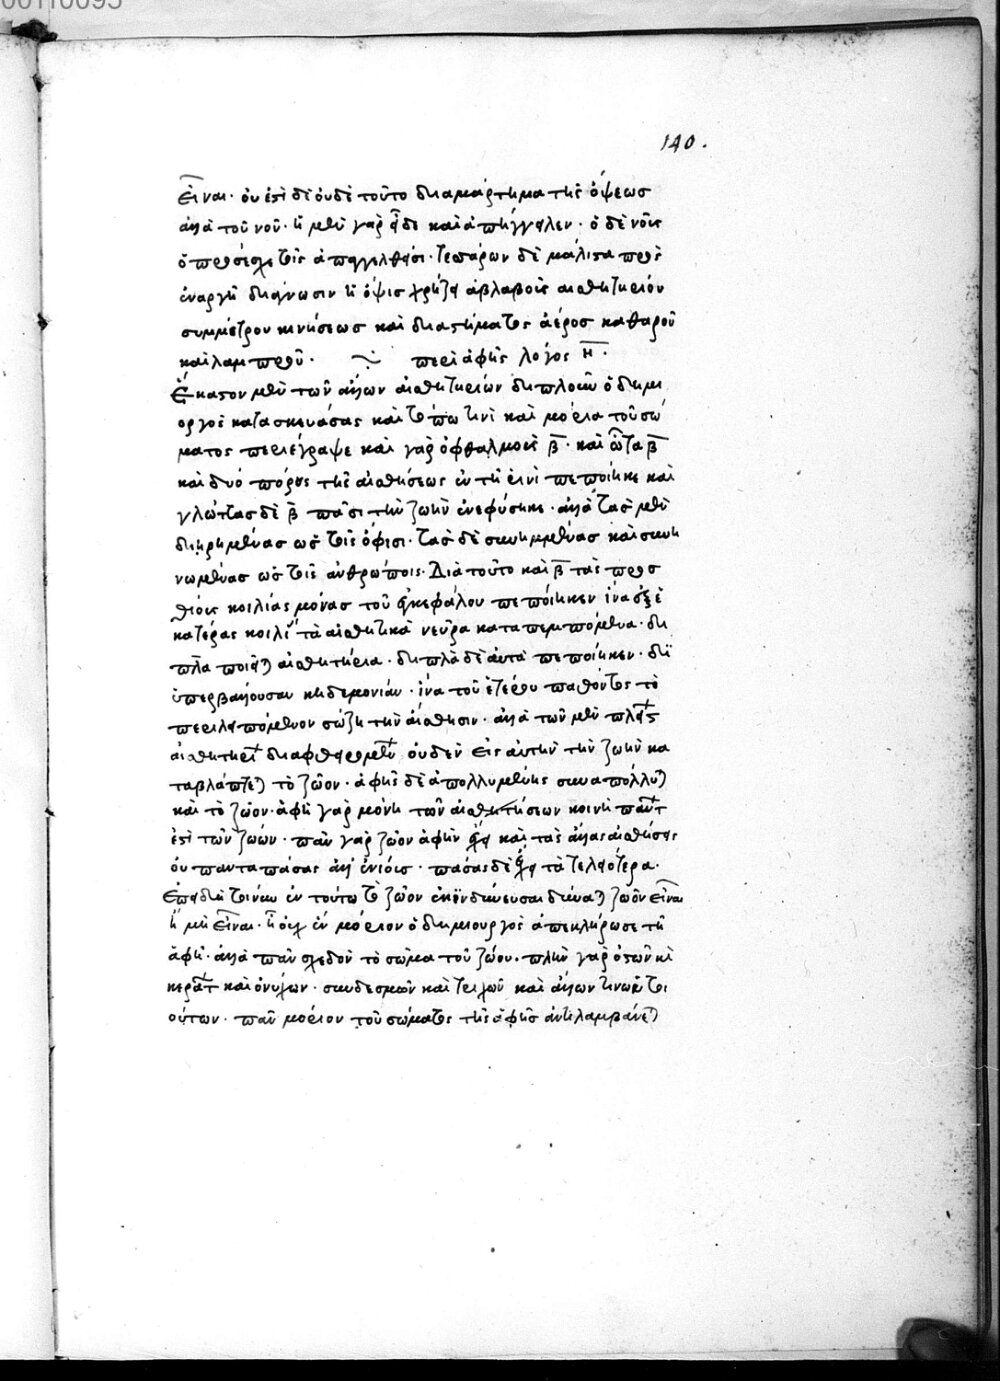 00110095
140.
εἶναι· οὐ ἐστὶ δὲ οὐδὲ τοῦτο διαμάρτημα τῆς ὄψεως
ἀλλὰ τοῦ νοῦ· ἡ μὲν γὰρ εἶδε καὶ ἀπήγγειλεν· ὁ δὲ νοῦς
οὐ προσέσχε τοῖς ἀπαγγελθεῖσι· τεσσάρων δὲ μάλιστα πρὸς
ἐναργῆ διάγνωσιν ἡ ὄψις χρήζει ἀβλαβοῦς αἰσθητηρίου
συμμέτρου κινήσεως καὶ διαστήματος ἀέρος καθαροῦ
καὶ λαμπροῦ· περὶ ἁφῆς λόγος η̅·
Ἕκαστον μὲν τῶν ἄλλων αἰσθητηρίων διπλοῦν ὁ δημι
ουργὸς κατασκευάσας καὶ τόπω τινὶ καὶ μόρια τοῦ σώ
ματος περιέγραψε καὶ γὰρ ὀφθαλμοὺς β̅· καὶ ὦτα β̅
καὶ δύο πόρους τῆς αἰσθήσεως ἐν τῆ ῥινὶ πεποίηκε καὶ
γλώττας δὲ β̅ πᾶσι τὴν ζωὴν ἐνεφύσησε· ἀλλὰ τὰς μὲν
διῃρημένας ὡς τοῖς ὄφισι· τὰς δὲ συνημμένας καὶ συνη
νωμένας ὡς τοῖς ἀνθρώποις· Διὰ τοῦτο καὶ β̅ τὰς προσ
θίους κοιλίας μόνας τοῦ ἐγκεφάλου πεποίηκεν ἵνα ἐξ ἑ
κατέρας κοιλί τὰ αἰσθητικὰ νεῦρα καταπεμπόμενα· δι
πλᾶ ποιεῖ αἰσθητήρια· διπλὰ δὲ αὐτὰ πεποίηκεν· δι
ὑπερβάλλουσαν κηδεμονίαν· ἵνα τοῦ ἑτέρου παθόντος τὸ
περιλειπόμενον σώζη τὴν αἴσθησιν· ἀλλὰ τῶν μὲν πλεις
αἰσθητηρ διαφθειρομεν οὐδεν εἰς αὐτὴν τὴν ζωὴν κα
ταβλάπτε τὸ ζῶον· ἁφῆς δὲ ἀπολλυμένης συναπόλλυ
καὶ τὸ ζῶον· ἁφὴ γὰρ μόνη τῶν αἰσθητήσεων κοινὴ παντ
ἐστὶ τῶν ζώων· πᾶν γὰρ ζῶον ἁφὴν ἔχει καὶ τὰς ἄλλας αἰσθήσεις
οὐ πάντα πάσας ἀλλ ἐνίοις· πάσας δὲ ἔχει τὰ τελειότερα·
Ἐπειδὴ τοίνυν ἐν τούτω τὸ ζῶον ἐκινδύνευσαι δύνα ζῶον εἶναι
ἢ μὴ εἶναι· ἢ οὐχ ἓν μόριον ὁ δημιουργὸς ἀπεκλήρωσε τῆ
ἁφῆ· ἀλλὰ πᾶν σχεδὸν τὸ σῶμα τοῦ ζώου· πλὴν γὰρ ὀστῶν κὶ
κεράτ καὶ ὀνύχων· συνδεσμῶν καὶ τριχῶν καὶ ἄλλων τινῶν τοι
ούτων· πᾶν μόριον τοῦ σώματος τῆς ἁφῆς ἀντιλαμβάνε